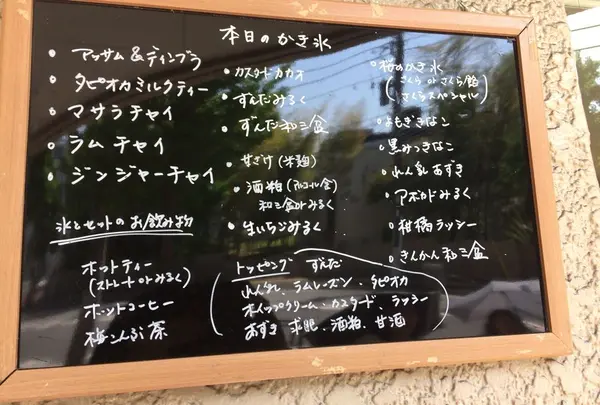 本日のかき氷
• アッサム&ディンブラ
• タピオカミルクティー
• マサラチャイ
• ラムチャイ
• ジンジャーチャイ
氷とセットのお飲み物
ホットティー
(ストレート or みるく)
ホットコーヒー
梅こんぶ茶
• カスタードカカオ
• ずんだみるく
• ずんだ和三盆
• 甘ざけ(米麹)
• 酒粕(アルコール含)
和三盆 or みるく
• 生いちごみるく
• 桜のかき氷
(さくら or さくら/餡
さくらスペシャル)
• よもぎきなこ
• 黒みつきなこ
• れん乳あずき
• アボカドみるく
• 柑橘ラッシー
• きんかん和三盆
トッピング ずんだ
れん乳、ラムレーズン・タピオカ
ホイップクリーム・カスタード、ラッシー
あずき 求肥、酒粕、甘酒